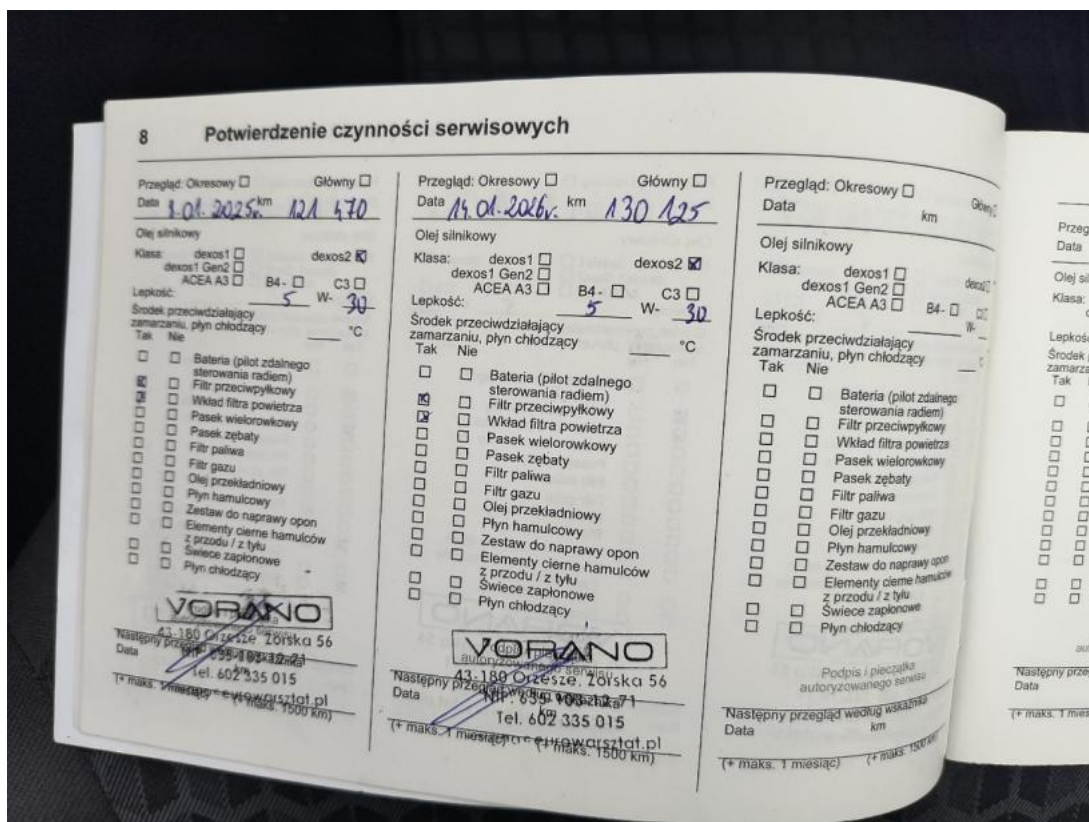 8 Potwierdzenie czynności serwisowych
Przegląd: Okresowy Główny
Data 8.01.2025r. km 121 470
Olej silnikowy
Klasa: dexos1 dexos2
dexos1 Gen2
ACEA A3 B4- C3
Lepkość: 5 W- 30
Środek przeciwdziałający
zamarzaniu, płyn chłodzący °C
Tak Nie
Bateria (pilot zdalnego
sterowania radiem)
Filtr przeciwpyłkowy
Wkład filtra powietrza
Pasek wielorowkowy
Pasek zębaty
Filtr paliwa
Filtr gazu
Olej przekładniowy
Płyn hamulcowy
Zestaw do naprawy opon
Elementy cierne hamulców
z przodu / z tyłu
Świece zapłonowe
Płyn chłodzący
VORANO
43-180 Orzesze, Żorska 56
Następny przegląd według wskaźnika
NIP: 635-103-12-71
Data km
Tel. 602 335 015
(+ maks. 1 miesiąc) (+ maks. 1500 km)
eurowarsztat.pl
Przegląd: Okresowy Główny
Data 14.01.2026r. km 130 125
Olej silnikowy
Klasa: dexos1 dexos2
dexos1 Gen2
ACEA A3 B4- C3
Lepkość: 5 W- 30
Środek przeciwdziałający
zamarzaniu, płyn chłodzący °C
Tak Nie
Bateria (pilot zdalnego
sterowania radiem)
Filtr przeciwpyłkowy
Wkład filtra powietrza
Pasek wielorowkowy
Pasek zębaty
Filtr paliwa
Filtr gazu
Olej przekładniowy
Płyn hamulcowy
Zestaw do naprawy opon
Elementy cierne hamulców
z przodu / z tyłu
Świece zapłonowe
Płyn chłodzący
VORANO
autoryzowanego serwisu
43-180 Orzesze, Żorska 56
Następny przegląd według wskaźnika
NIP: 635-103-12-71
Data km
Tel. 602 335 015
(+ maks. 1 miesiąc) (+ maks. 1500 km)
eurowarsztat.pl
Przegląd: Okresowy Główny
Data km
Olej silnikowy
Klasa: dexos1 dexos2
dexos1 Gen2
ACEA A3 B4- C3
Lepkość: W-
Środek przeciwdziałający
zamarzaniu, płyn chłodzący
Tak Nie
Bateria (pilot zdalnego
sterowania radiem)
Filtr przeciwpyłkowy
Wkład filtra powietrza
Pasek wielorowkowy
Pasek zębaty
Filtr paliwa
Filtr gazu
Olej przekładniowy
Płyn hamulcowy
Zestaw do naprawy opon
Elementy cierne hamulców
z przodu / z tyłu
Świece zapłonowe
Płyn chłodzący
Podpis i pieczątka
autoryzowanego serwisu
Następny przegląd według wskaźnika
Data km
(+ maks. 1 miesiąc) (+ maks. 1500 km)
Przeg
Data
Olej sil
Klasa:
Lepkoś
Środek
zamarza
Tak
Następny przeg
Data
(+ maks. 1 mies